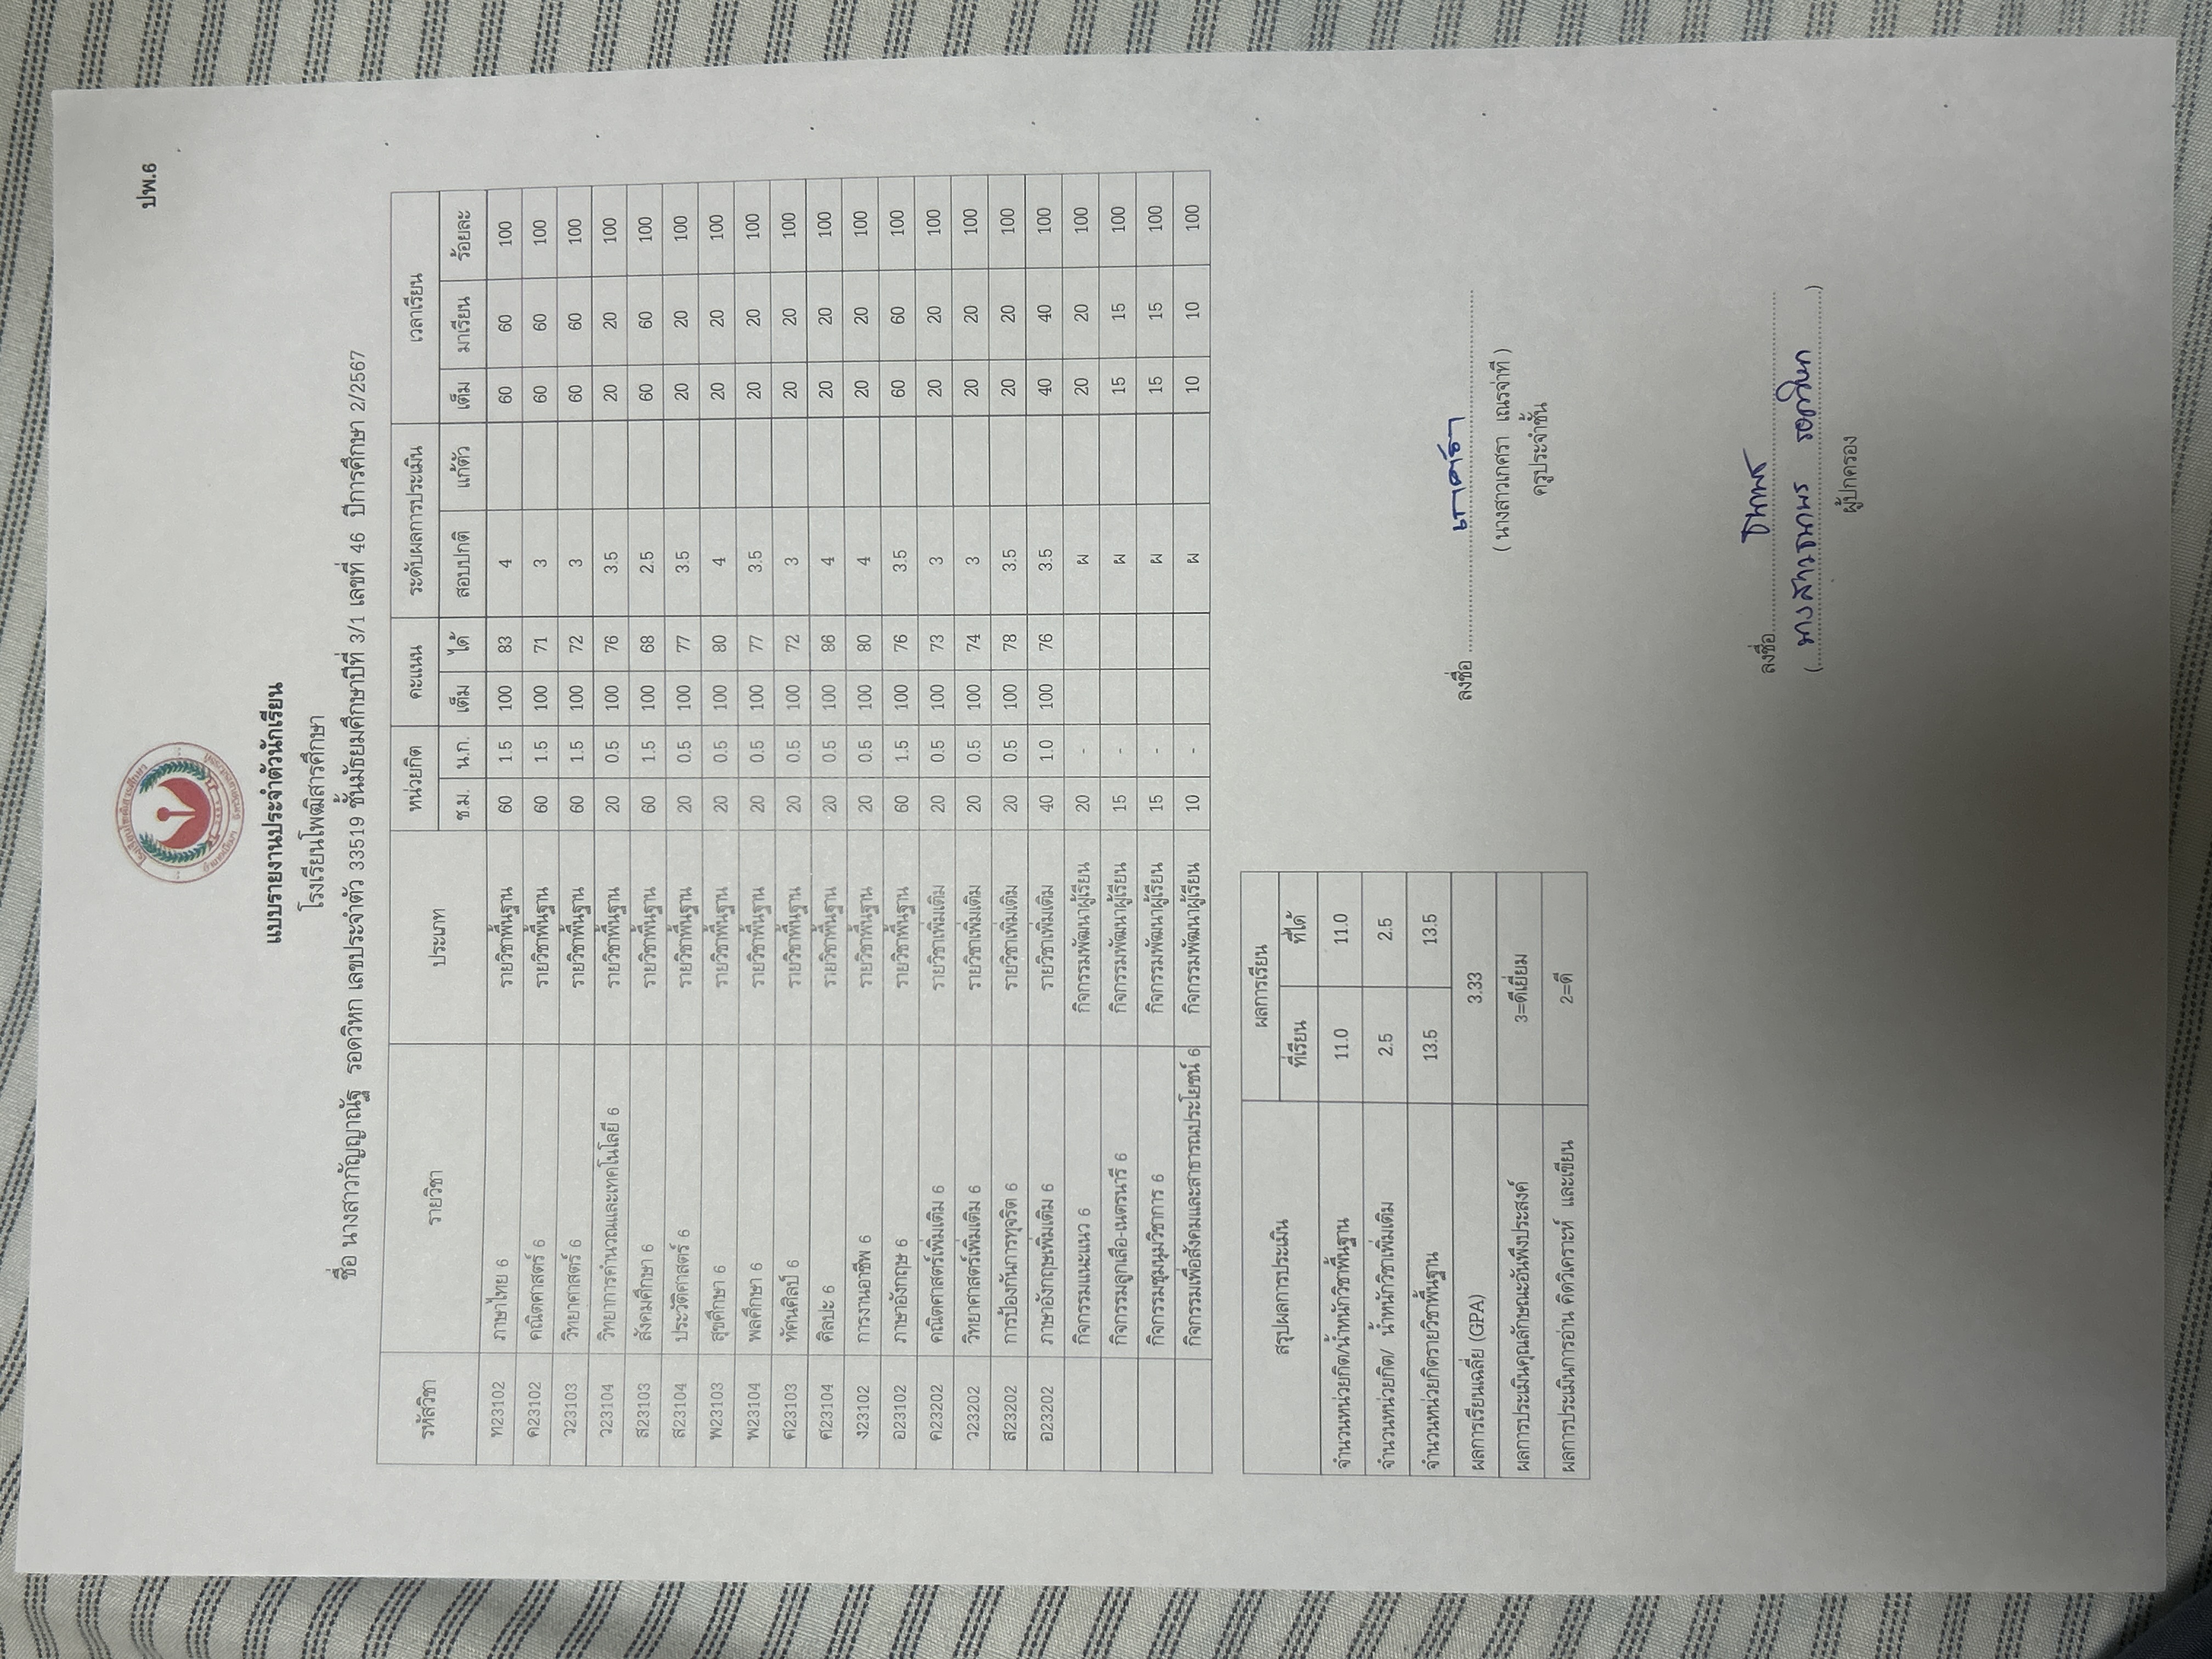 ปพ.6
แบบรายงานประจำตัวนักเรียน
โรงเรียนโพฒิสารศึกษา
ชื่อ นางสาวกัญญาณัฐ รอดวิหก เลขประจำตัว 33519 ชั้นมัธยมศึกษาปีที่ 3/1 เลขที่ 46 ปีการศึกษา 2/2567
รหัสวิชา รายวิชา ประเภท หน่วยกิต คะแนน ระดับผลการประเมิน เวลาเรียน
ช.ม. น.ก. เต็ม ได้ สอบปกติ แก้ตัว เต็ม มาเรียน ร้อยละ
ท23102 ภาษาไทย 6 รายวิชาพื้นฐาน 60 1.5 100 83 4 60 60 100
ค23102 คณิตศาสตร์ 6 รายวิชาพื้นฐาน 60 1.5 100 71 3 60 60 100
ว23103 วิทยาศาสตร์ 6 รายวิชาพื้นฐาน 60 1.5 100 72 3 60 60 100
ว23104 วิทยาการคำนวณและเทคโนโลยี 6 รายวิชาพื้นฐาน 20 0.5 100 76 3.5 20 20 100
ส23103 สังคมศึกษา 6 รายวิชาพื้นฐาน 60 1.5 100 68 2.5 60 60 100
ส23104 ประวัติศาสตร์ 6 รายวิชาพื้นฐาน 20 0.5 100 77 3.5 20 20 100
พ23103 สุขศึกษา 6 รายวิชาพื้นฐาน 20 0.5 100 80 4 20 20 100
พ23104 พลศึกษา 6 รายวิชาพื้นฐาน 20 0.5 100 77 3.5 20 20 100
ศ23103 ทัศนศิลป์ 6 รายวิชาพื้นฐาน 20 0.5 100 72 3 20 20 100
ศ23104 ศิลปะ 6 รายวิชาพื้นฐาน 20 0.5 100 86 4 20 20 100
ง23102 การงานอาชีพ 6 รายวิชาพื้นฐาน 20 0.5 100 80 4 20 20 100
อ23102 ภาษาอังกฤษ 6 รายวิชาพื้นฐาน 60 1.5 100 76 3.5 60 60 100
ค23202 คณิตศาสตร์เพิ่มเติม 6 รายวิชาเพิ่มเติม 20 0.5 100 73 3 20 20 100
ว23202 วิทยาศาสตร์เพิ่มเติม 6 รายวิชาเพิ่มเติม 20 0.5 100 74 3 20 20 100
ส23202 การป้องกันการทุจริต 6 รายวิชาเพิ่มเติม 20 0.5 100 78 3.5 20 20 100
อ23202 ภาษาอังกฤษเพิ่มเติม 6 รายวิชาเพิ่มเติม 40 1.0 100 76 3.5 40 40 100
กิจกรรมแนะแนว 6 กิจกรรมพัฒนาผู้เรียน 20 - ผ 20 20 100
กิจกรรมลูกเสือ-เนตรนารี 6 กิจกรรมพัฒนาผู้เรียน 15 - ผ 15 15 100
กิจกรรมชุมนุมวิชาการ 6 กิจกรรมพัฒนาผู้เรียน 15 - ผ 15 15 100
กิจกรรมเพื่อสังคมและสาธารณประโยชน์ 6 กิจกรรมพัฒนาผู้เรียน 10 - ผ 10 10 100
สรุปผลการประเมิน ผลการเรียน
ที่เรียน ที่ได้
จำนวนหน่วยกิต/น้ำหนักวิชาพื้นฐาน 11.0 11.0
จำนวนหน่วยกิต/ น้ำหนักวิชาเพิ่มเติม 2.5 2.5
จำนวนหน่วยกิตรายวิชาพื้นฐาน 13.5 13.5
ผลการเรียนเฉลี่ย (GPA) 3.33
ผลการประเมินคุณลักษณะอันพึงประสงค์ 3=ดีเยี่ยม
ผลการประเมินการอ่าน คิดวิเคราะห์ และเขียน 2=ดี
ลงชื่อ เกศรา
( นางสาวเกศรา เณรจ่าที )
ครูประจำชั้น
ลงชื่อ ธนาพร
( นางสาวธนาพร รอดวิหก )
ผู้ปกครอง